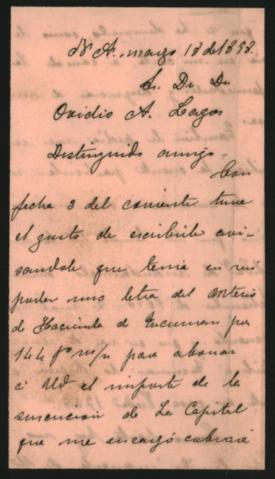 Bs As. marzo 18 de 1898.
Sr. Dr. Dn
Ovidio A. Lagos
Distinguido amigo.
Con
fecha 3 del corriente tuve
el gusto de escribirle avi-
sandole que tenia en mi
poder una letra del
de Hacienda de Tucuman por
144 $ m/n para abonar
á Ud el importe de la
suscricion de La Capital
que me encargó cobrara